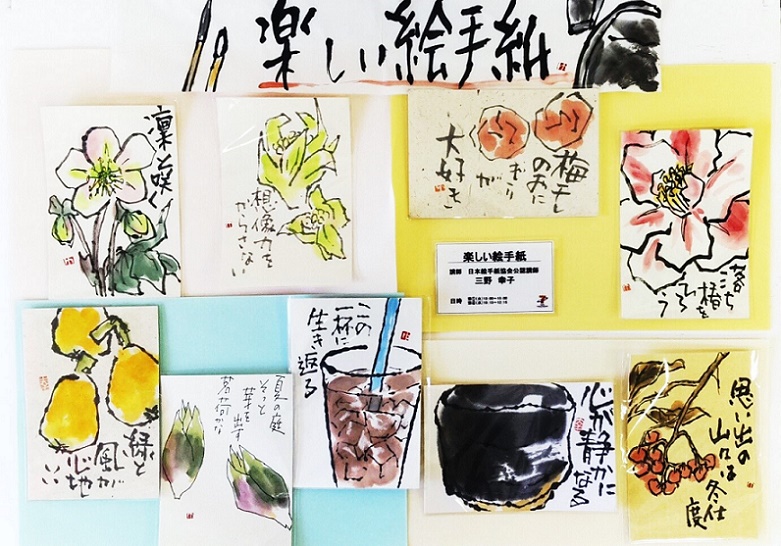 楽しい絵手紙
凛と咲く
想像力を
からさない
梅干し
のおに
ぎり
が
大好き
楽しい絵手紙
講師 日本絵手紙協会公認講師
三野 幸子
日時
緑と
風が
心地
いい
夏の庭
そっと
芽を出す
茗荷かな
この
一杯に
生き返る
心が静かに
なる
思い出の
山は
冬仕
度